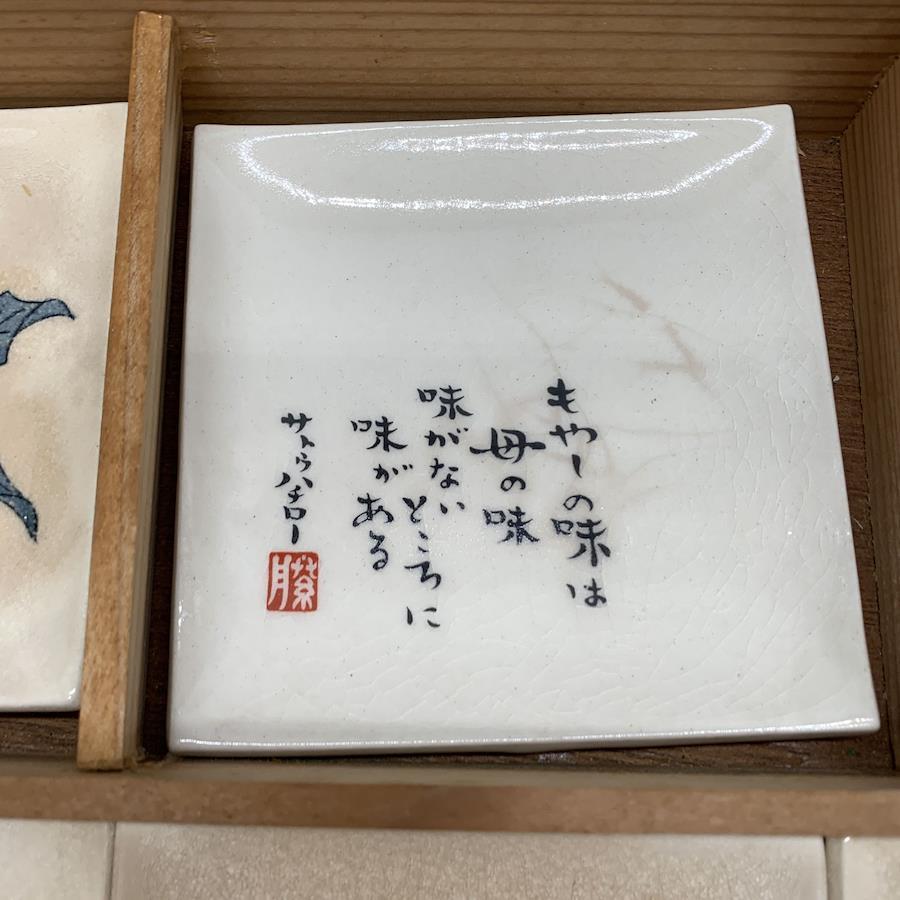 もやしの味は
母の味
味がない
ところに
味がある
サトウハチロー